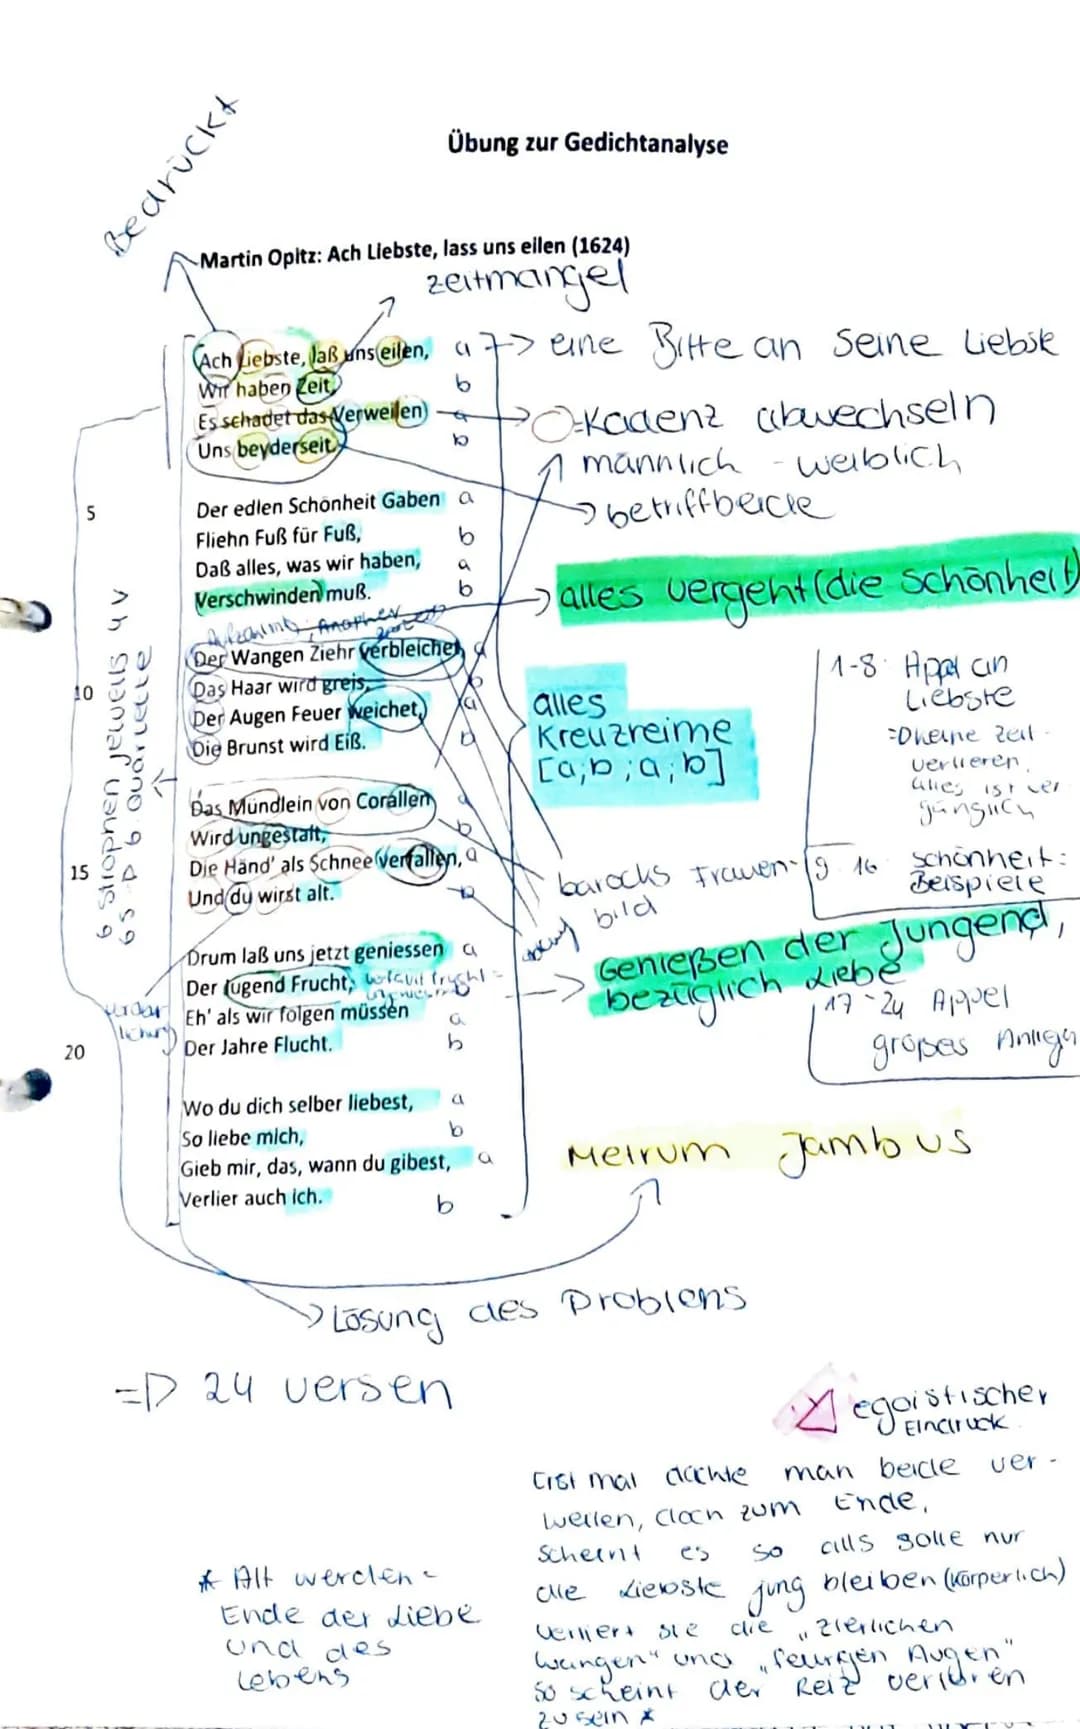 Bedrückt
Übung zur Gedichtanalyse
Martin Opitz: Ach Liebste, lass uns eilen (1624)
zeitmangel
Ach Liebste, laß uns eilen, a -> eine Bitte an seine Liebste
Wir haben Zeit, b
Es schadet das Verweilen a -> Kadenz abwechseln
Uns beyderseit. b
männlich - weiblich
-> betrifft beide
5 Der edlen Schönheit Gaben a
Fliehn Fuß für Fuß, b
Daß alles, was wir haben, a
Verschwinden muß. b
-> alles vergeht (die Schönheit)
Der Wangen Ziehr verbleichet, a
10 Das Haar wird greis, b
Der Augen Feuer weichet, a
Die Brunst wird Eiß. b
6 Strophen jeweils 4 V
6 S -> 6 Quartette
alles
Kreuzreime
[a;b;a;b]
1-8: Appel an
Liebste
=> keine Zeit
verlieren,
alles ist ver
gänglich
Das Mündlein von Corallen a
Wird ungestalt, b
15 Die Händ' als Schnee verfallen, a
Und du wirst alt. b
barocks Frauen-
bild
9-16 Schönheit:
Beispiele
Drum laß uns jetzt geniessen a
Der Jugend Frucht, b
Eh' als wir folgen müssen a
20 Der Jahre Flucht. b
-> Genießen der Jungend,
bezüglich Liebe
17-24 Appel
großes
Wo du dich selber liebest, a
So liebe mich, b
Gieb mir, das, wann du gibest, a
Verlier auch ich. b
Metrum Jambus
-> Lösung des Problems
=> 24 versen
egoistischer
Eindruck
Erst mal dachte man beide ver-
weilen, doch zum Ende,
scheint es so als solle nur
die Liebste jung bleiben (körperlich)
verliert sie die „zierlichen
Wangen" und „feurigen Augen"
so scheint der Reiz verloren
zu sein *
* Alt werden =
Ende der Liebe
und des
Lebens